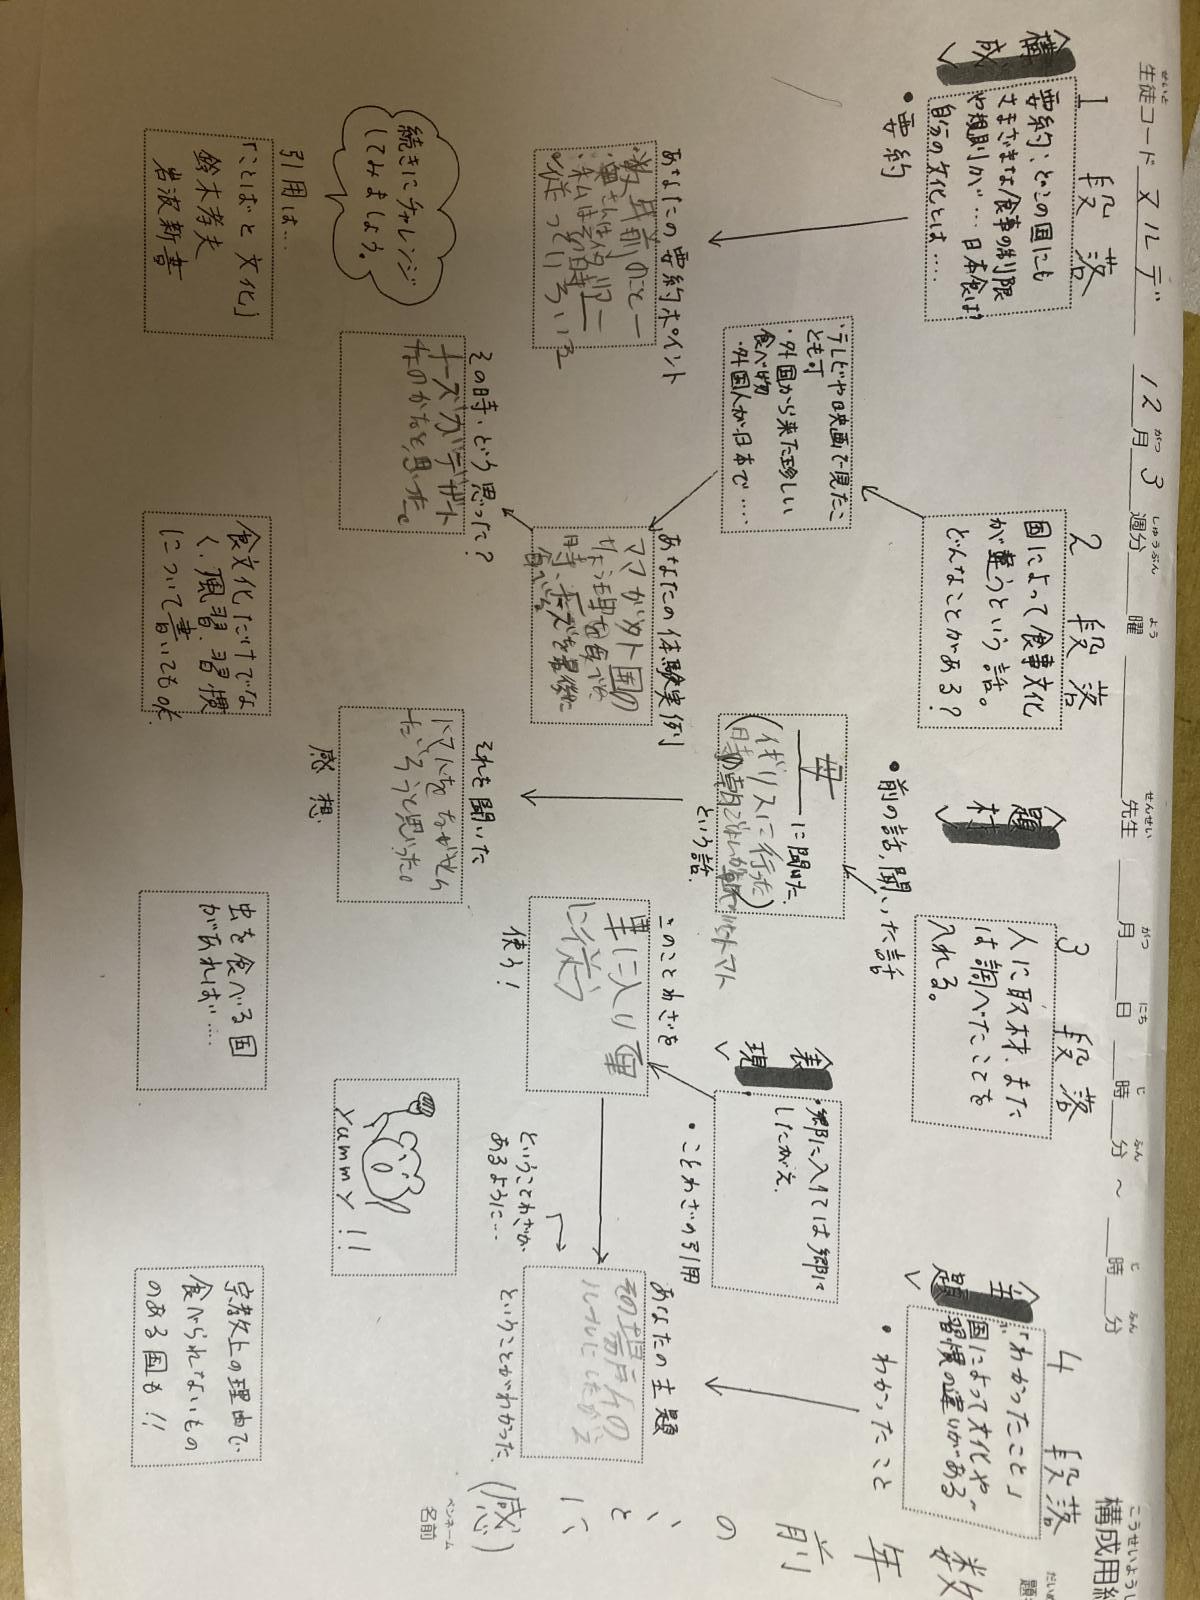 構成用紙
題
数年前のこと(感
ペンネーム
名前
生徒コード ヌルデ 12月3週分 曜 先生 月 日 時 分 ~ 時 分
せいと がつ しゅうぶん よう せんせい がつ にち じ ふん じ ふん
1 段落
要約:どこの国にも
さまざまな食事の制限
や規則が…日本食は?
自分の文化とは……
構成
・要約
あなたの要約ポイント
数年前のこと
引用は…
「ことばと文化」
鈴木孝夫
岩波新書
続きにチャレンジ
してみましょう。
2 段落
国によって食事文化
が違うという話。
どんなことがある?
・テレビや映画で見たこ
とも可
・外国から来た珍しい
食べ物
・外国人が日本で……
あなたの体験実例
ママが外国の
その時、どう思った?
チーズがデザート
なのかなと思った。
食文化だけでな
く、風習、習慣
について書いてもOK.
題材
・前の話、聞いた話
3 段落
人に取材、また
は調べたことを
入れる。
母に聞いた
(イギリスに行った
という話.
それを聞いた
感想
表現
・郷に入りては郷に
したがえ.
・ことわざの引用
このことわざを
使う!
ということわざが
あるように…
虫を食べる国
があれば……
Yummy!!
主題
4 段落
「わかったこと」
国によって文化や
習慣の違いがある
・わかったこと
あなたの主題
その場所の
ルールにしたがう
ということがわかった
宗教上の理由で
食べられないもの
のある国も!!